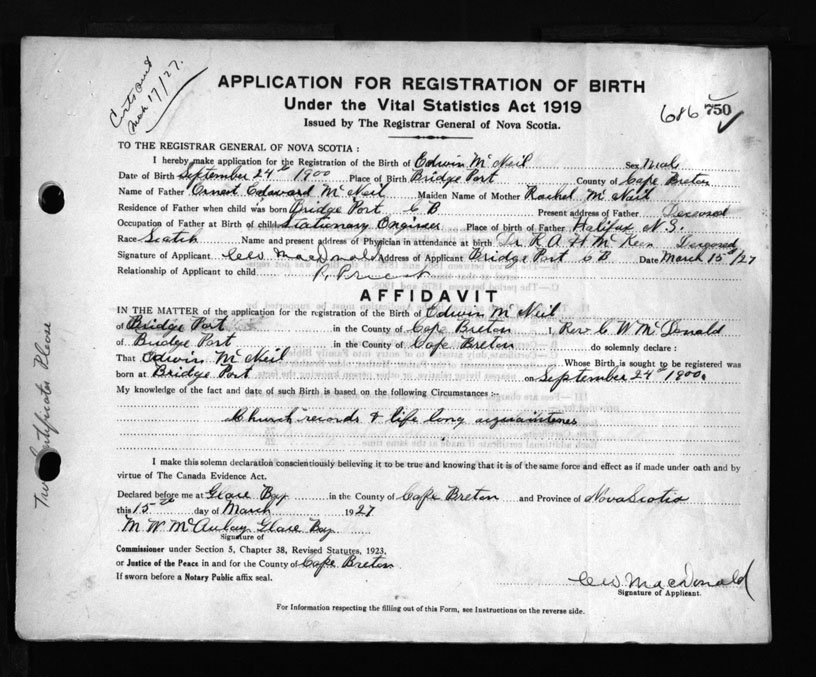 Certs sent
Mch 17/27.
APPLICATION FOR REGISTRATION OF BIRTH
Under the Vital Statistics Act 1919
Issued by The Registrar General of Nova Scotia.
686 750
TO THE REGISTRAR GENERAL OF NOVA SCOTIA :
I hereby make application for the Registration of the Birth of Edwin McNeil Sex Male
Date of Birth September 24th 1900 Place of Birth Bridge Port County of Cape Breton
Name of Father Ernest Edward McNeil Maiden Name of Mother Rachel McNeil
Residence of Father when child was born Bridge Port C B Present address of Father Deceased
Occupation of Father at Birth of child Stationary Engineer Place of birth of Father Halifax N.S.
Race Scotch Name and present address of Physician in attendance at birth Dr. K A H McKeen Deceased
Signature of Applicant C W MacDonald Address of Applicant Bridge Port C B Date March 15th/27
Relationship of Applicant to child P. Priest
AFFIDAVIT
IN THE MATTER of the application for the registration of the Birth of Edwin McNeil
of Bridge Port in the County of Cape Breton I, Rev C W McDonald
of Bridge Port in the County of Cape Breton do solemnly declare :
That Edwin McNeil Whose Birth is sought to be registered was
born at Bridge Port on September 24th 1900.
My knowledge of the fact and date of such Birth is based on the following Circumstances :-
Church records & life long
I make this solemn declaration conscientiously believing it to be true and knowing that it is of the same force and effect as if made under oath and by
virtue of The Canada Evidence Act.
Declared before me at Glace Bay in the County of Cape Breton and Province of Nova Scotia
this 15th day of March 1927
M W McAulay Glace Bay
Signature of
Commissioner under Section 5, Chapter 38, Revised Statutes, 1923.
or Justice of the Peace in and for the County of Cape Breton
If sworn before a Notary Public affix seal.
C W MacDonald
Signature of Applicant.
For Information respecting the filling out of this Form, see Instructions on the reverse side.
Two Certificates Please